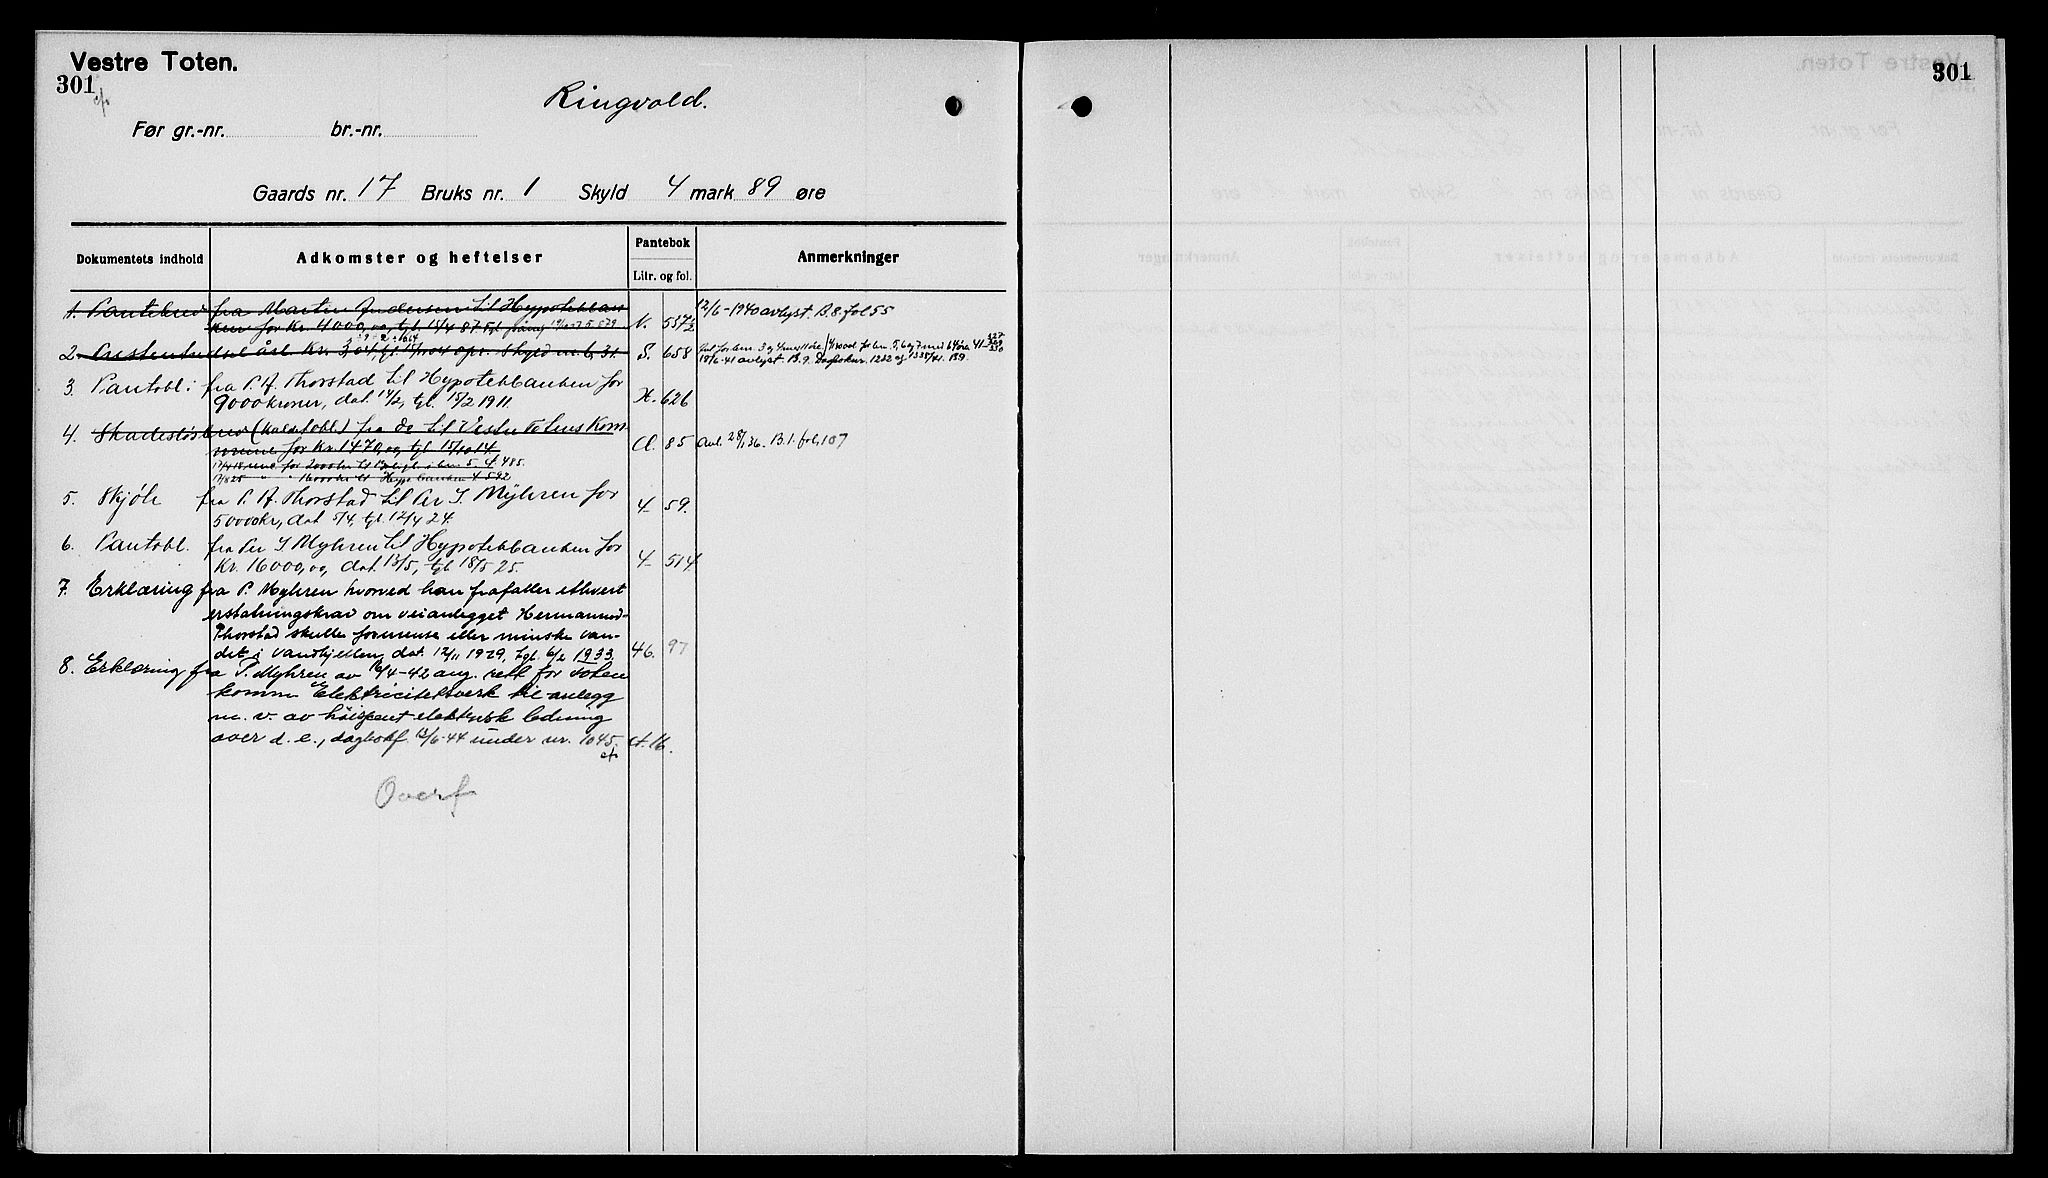 Vestre Toten.
301
cfr
Ringvold.
Før gr.-nr. br.-nr.
Gaards nr. 17 Bruks nr. 1 Skyld 4 mark 89 øre
Dokumentets indhold Adkomster og heftelser Pantebok Litr. og fol. Anmerkninger
1. Pantebrev fra Martin Andersen til Hypotekban-
ken for Kr. 4000,00, tgl. 15/4 87 N. 557½
12/6-1940 avlyst. B.8 fol 55
2. årl. Kr. 3,04, tgl. opr. Skyld m. 6, 31. S. 658
18/6-41 avlyst. B. 9. Dagboknr. 1222 og 1335/41. B9.
3. Pantobl: fra P. A. Thorstad til Hypotekbanken for
9000 kroner, dat. 14/2, tgl. 15/2 1911. X. 626
4. Skadesløsbrev (Kaldt obl.) fra do til Vestre Totens Kom-
mune for Kr. 1470,00, tgl. 15/10 14 Cl. 85 Avl. 28/1 36. B.1. fol, 107
485.
17/8 25 " " 16000 kr til Hypo banken 4 592
5. Skjöte fra P. A. Thorstad til Per S. Mÿhren for
50000 kr, dat 5/4, tgl. 12/4 24. 4 59.
6. Pantobl. fra Per S Myhren til Hypotekbanken for
Kr. 16000,00, dat. 13/5, tgl. 18/5 25. 4 514.
7. Erklæring fra P. Myhren hvorved han frafaller ethvert
erstatningskrav om veianlegget Hermanrud-
Thorstad skulle forurense eller minske van-
det i vandkjellen, dat. 12/11 1929, tgl. 6/2 1933. 46. 97
8. Erklæring fra P. Myhren av 16/4-42 ang. rett for Toten
komm Elektricitetsverk til anlegg
m. v. av höispent elektrisk ledning
over d. e., dagbokf. 13/6-44 under nr. 1045. ct. 16.
cfr
Overf
301